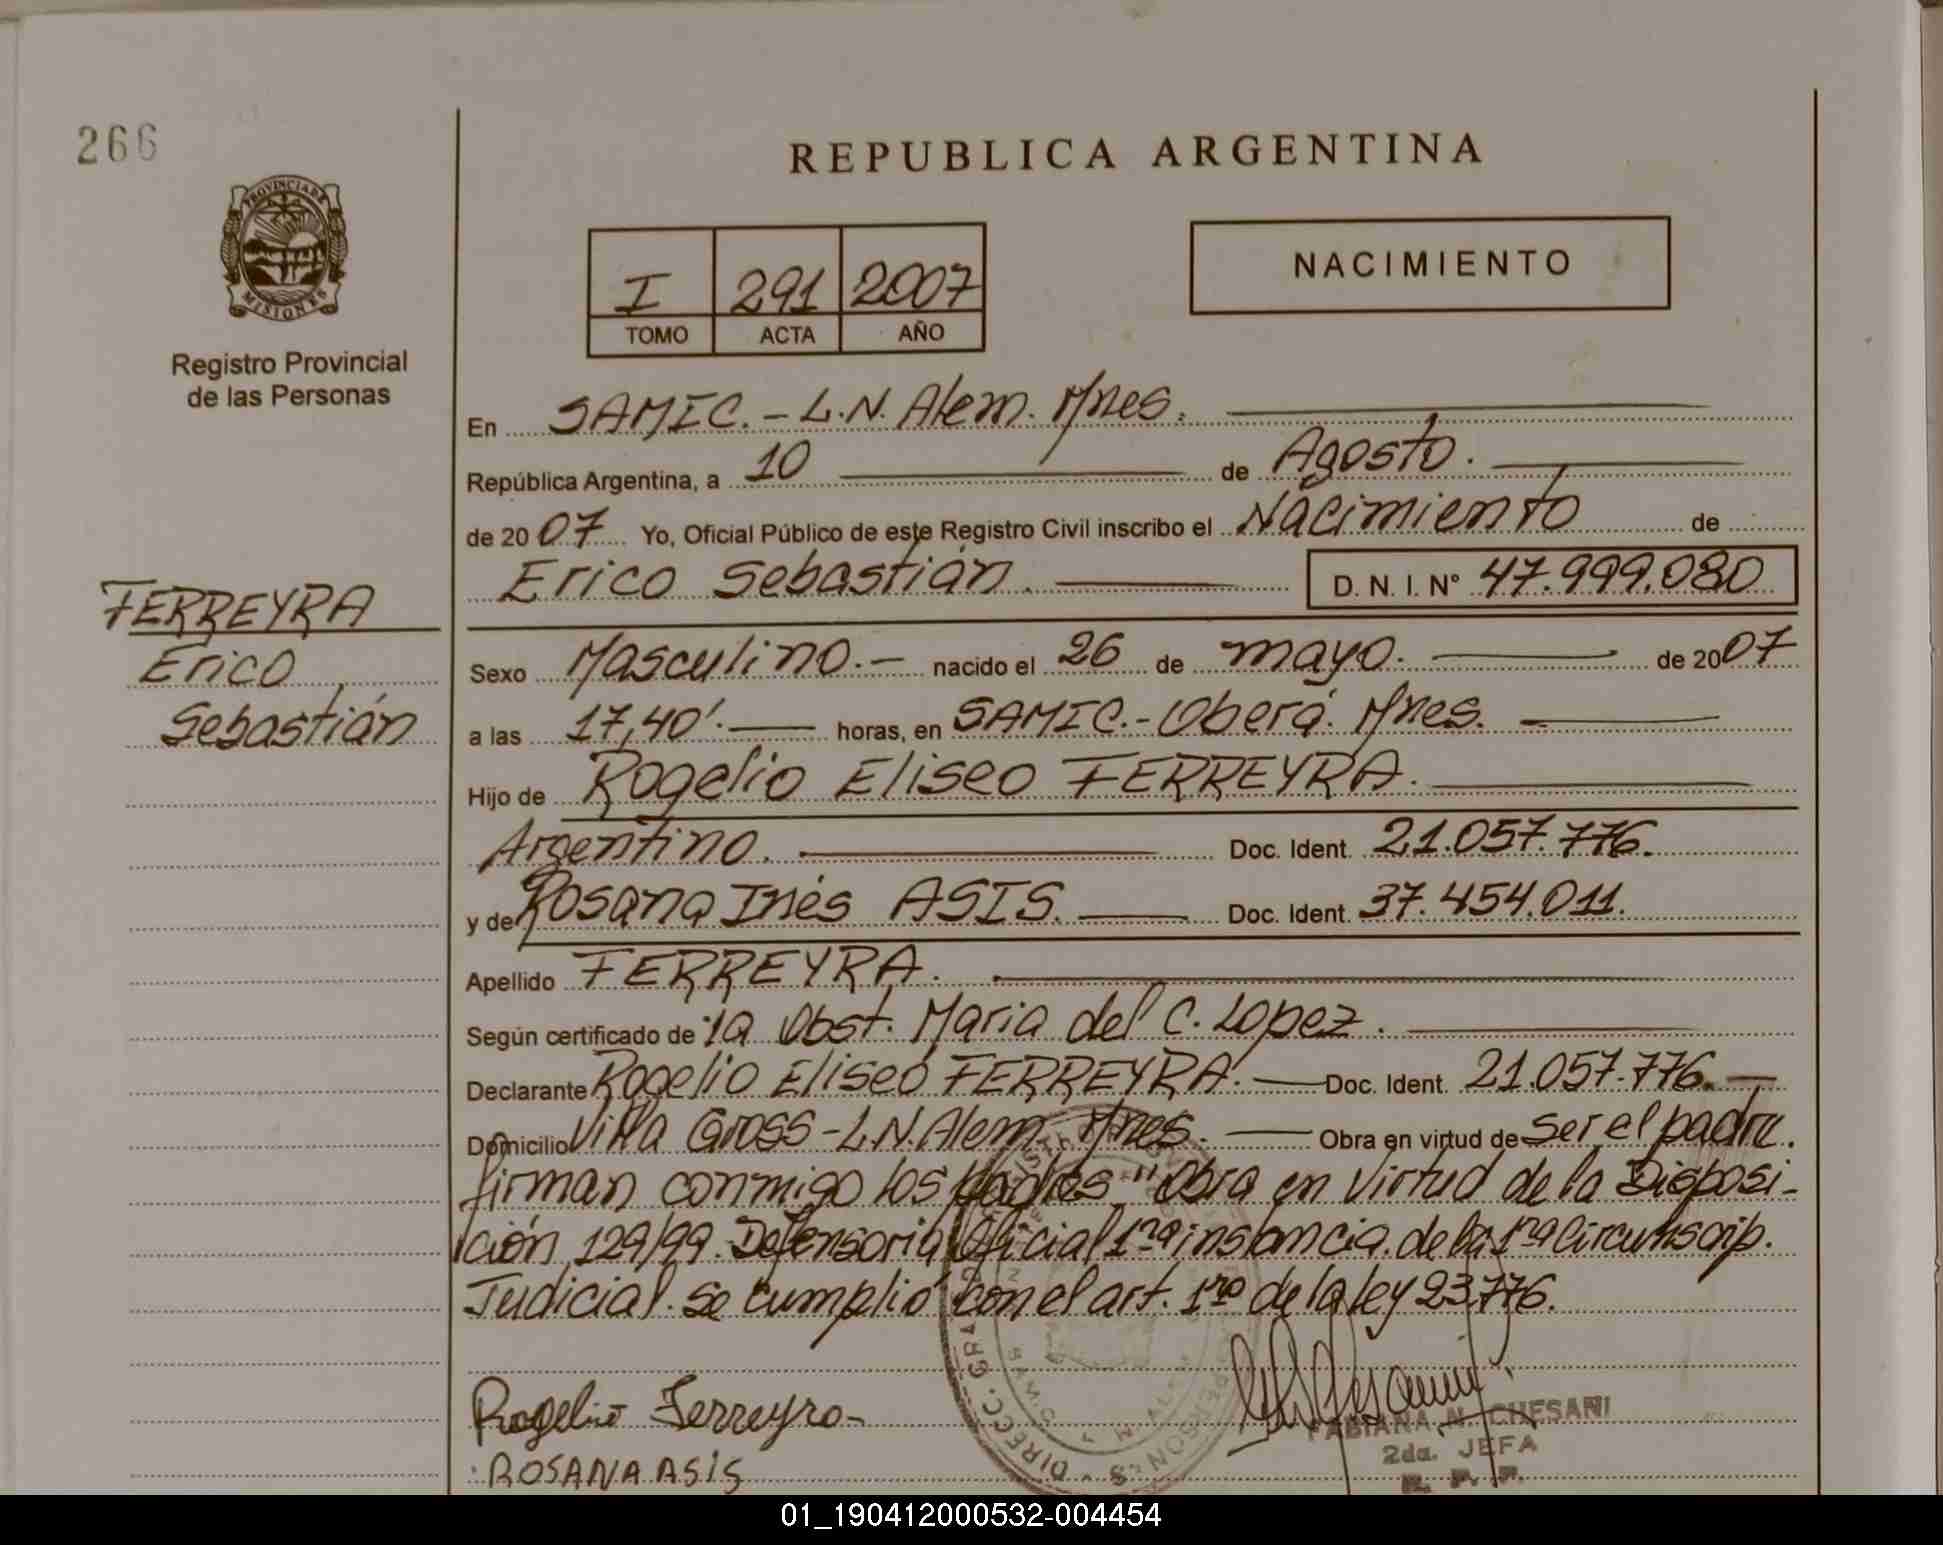 266
PROVINCIA DE
MISIONES
Registro Provincial
de las Personas
FERREYRA
Erico
Sebastián
REPUBLICA ARGENTINA
I 291 2007
TOMO ACTA AÑO
NACIMIENTO
En SAMIC.- L.N. Alem. Mnes.
República Argentina, a 10 de Agosto.
de 2007 Yo, Oficial Público de este Registro Civil inscribo el Nacimiento de
Erico Sebastián. D. N. I. N° 47.999.080
Sexo Masculino.- nacido el 26 de mayo. de 2007
a las 17,40'. horas, en SAMIC.- Oberá. Mnes.
Hijo de Rogelio Eliseo FERREYRA.
Argentino. Doc. Ident. 21.057.776.
y de Rosana Inés ASIS. Doc. Ident. 37.454.011.
Apellido FERREYRA.
Según certificado de la Obst. Maria del C. Lopez.
Declarante Rogelio Eliseo FERREYRA. Doc. Ident. 21.057.776.
Domicilio Villa Gross - L.N. Alem. Mnes. Obra en virtud de ser el padre.
firman conmigo los padres "Obra en virtud de la Disposi-
ción 129/99. Defensoria Oficial 1ra instancia de la 1ra Circunscrip.
Judicial. Se cumplió con el art. 1ro de la ley 23.776.
Rogelio Ferreyra
ROSANA ASIS
FABIANA N. CHESANI
2da. JEFA
R. P. P.
01_190412000532-004454